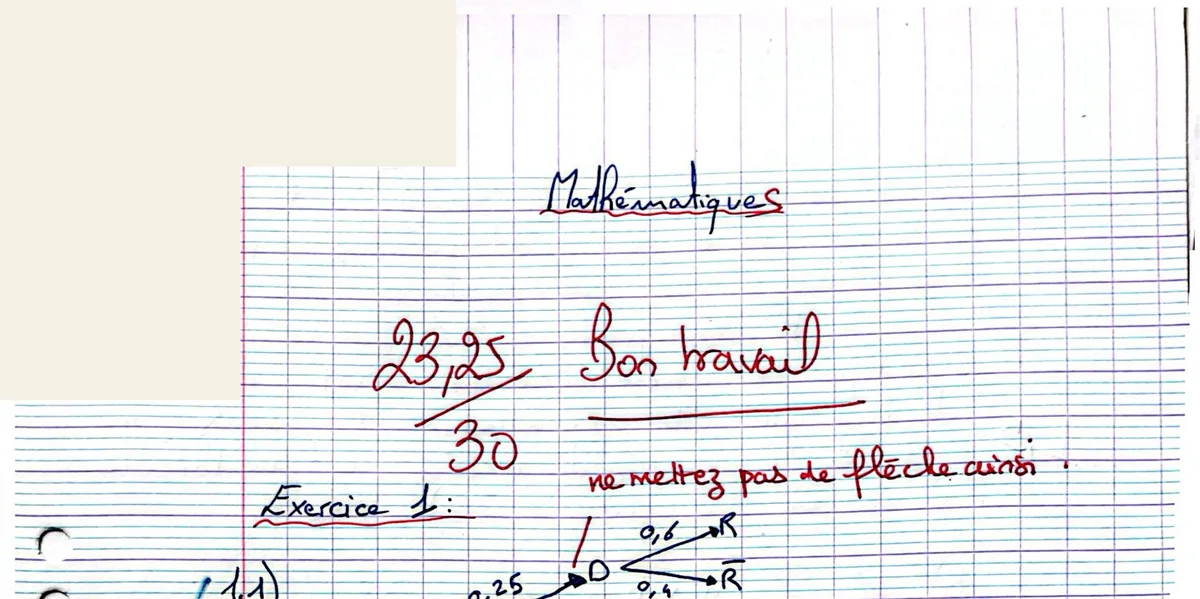 Mathématiques
23,25 Bon travail
30
ne mettez pas de flèche ainsi.
Exercice 1:
0,6 R
D
1.1) 0,25 0,4 R̅